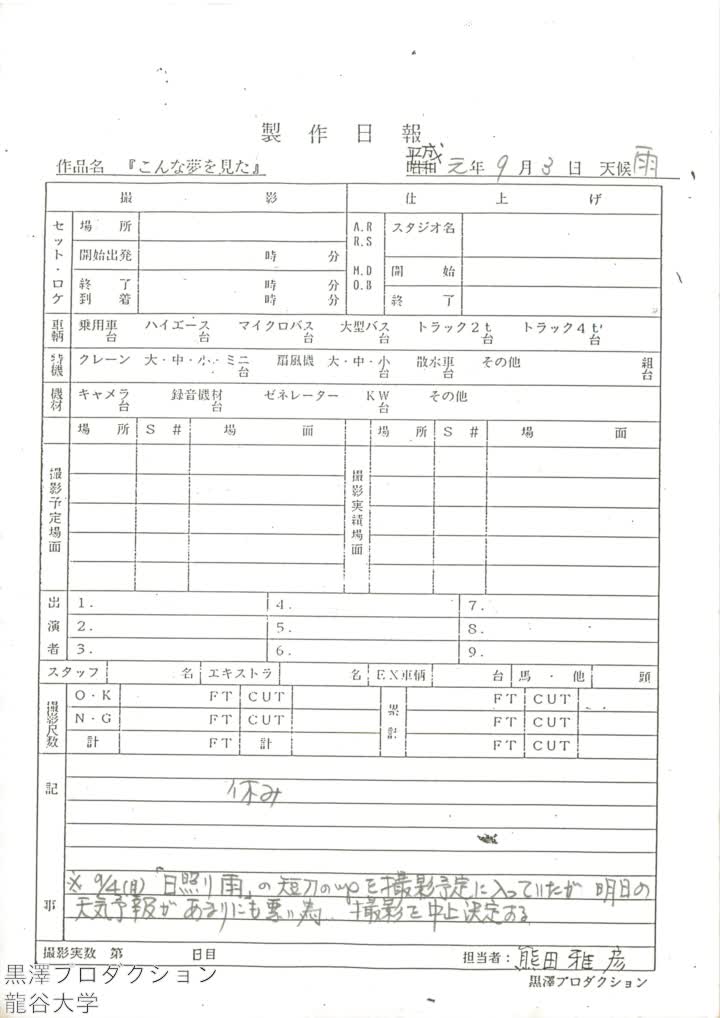 製作日報
作品名 『こんな夢を見た』 昭和 平成 元年 9月 3日 天候 雨
撮影 仕上げ
セット・ロケ 場所 A.R R.S スタジオ名
開始出発 時 分 M.D O.B 開始
終了 時 分
到着 時 分 終了
車輌 乗用車 台 ハイエース 台 マイクロバス 台 大型バス 台 トラック2t 台 トラック4t 台
特機 クレーン 大・中・小・ミニ 台 扇風機 大・中・小 台 散水車 台 その他 組 台
機材 キャメラ 台 録音機材 台 ゼネレーター KW 台 その他
場所 S# 場面 場所 S# 場面
撮影予定場面 撮影実績場面
出演者
1. 4. 7.
2. 5. 8.
3. 6. 9.
スタッフ 名 エキストラ 名 EX車輌 台 馬・他 頭
撮影尺数 O・K FT CUT 累計 FT CUT
N・G FT CUT FT CUT
計 FT 計 FT CUT
記事
休み
※ 9/4(月)「日照り雨」の短刀のupを撮影予定に入っていたが 明日の
天気予報があまりにも悪い為、撮影を中止決定する
撮影実数 第 日目 担当者: 熊田雅彦
黒澤プロダクション
黒澤プロダクション
龍谷大学